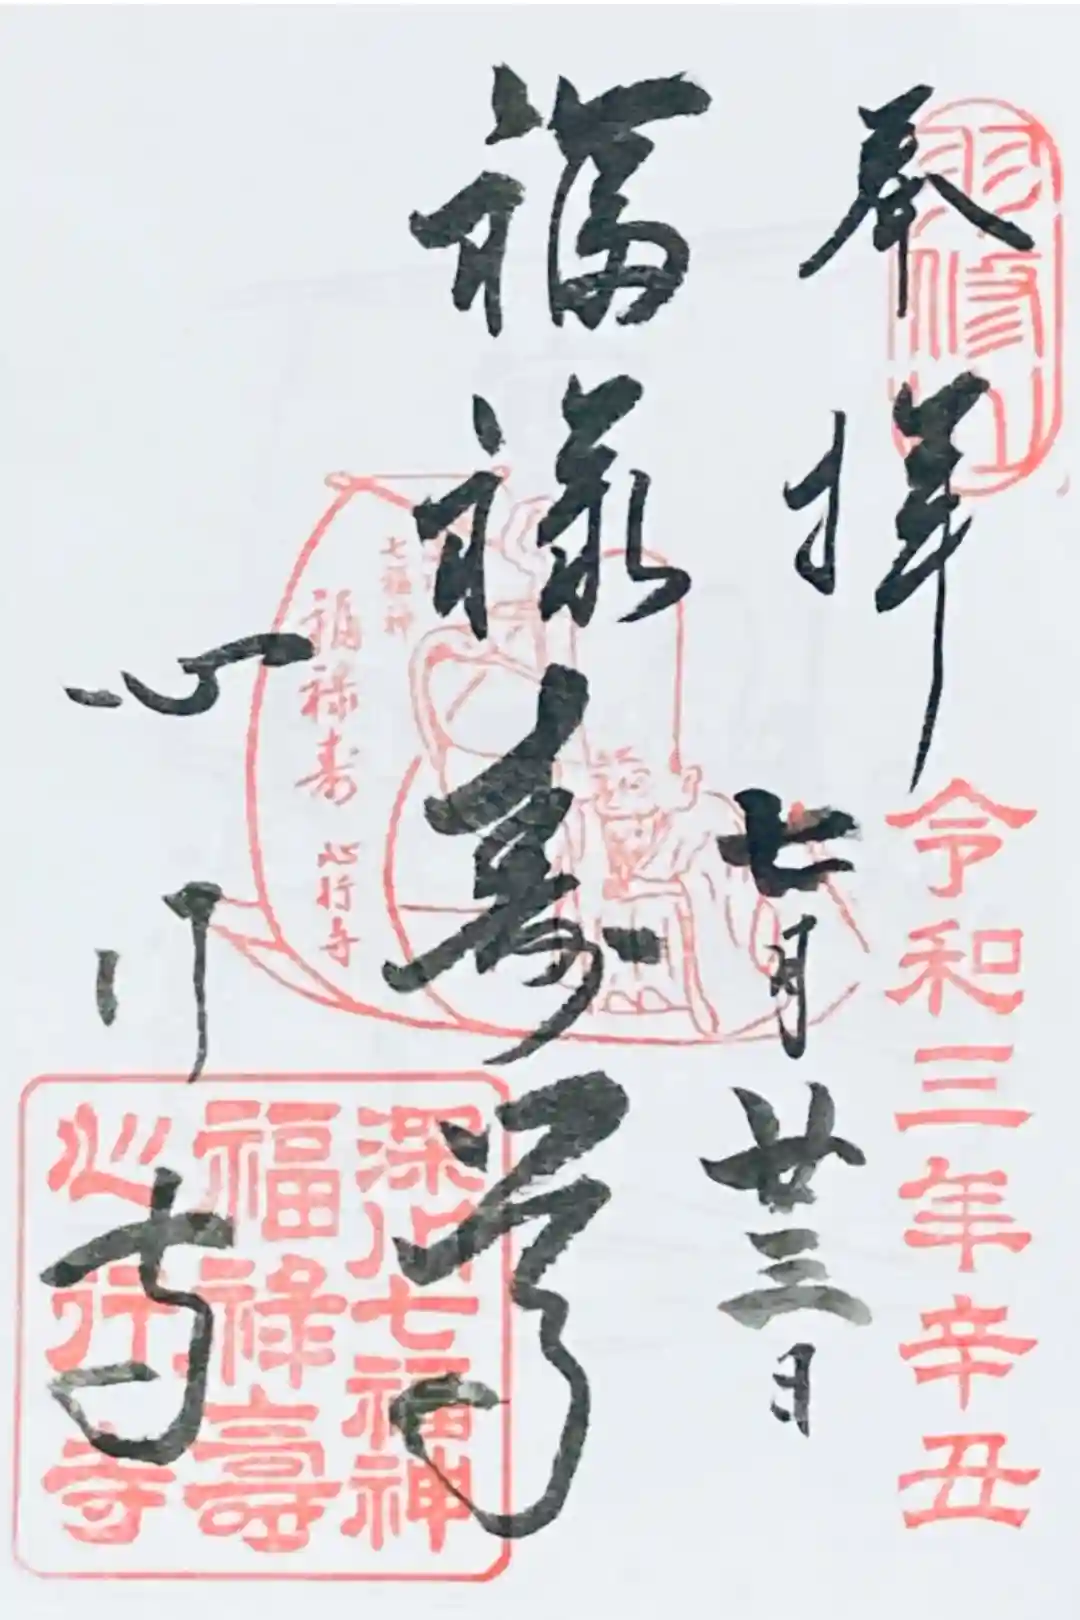 奉拝
七月廿三日
令和三年辛丑
福禄寿尊
心行寺
七福神
福禄寿 心行寺
深川七福神
福禄壽
心行寺